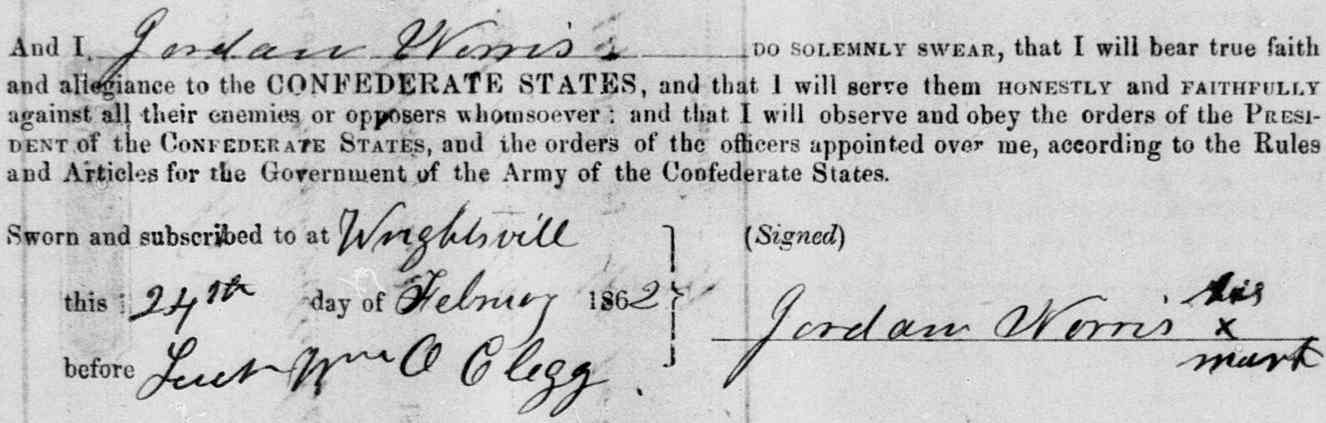 And I, Jordan Norris DO SOLEMNLY SWEAR, that I will bear true faith
and allegiance to the CONFEDERATE STATES, and that I will serve them HONESTLY and FAITHFULLY
against all their enemies or opposers whomsoever; and that I will observe and obey the orders of the PRESI-
DENT of the CONFEDERATE STATES, and the orders of the officers appointed over me, according to the Rules
and Articles for the Government of the Army of the Confederate States.
Sworn and subscribed to at Wrightsvill
(Signed)
this 24th day of Februay 1862
Jordan Norris his
x
mark
before Lieut Wm O Clegg